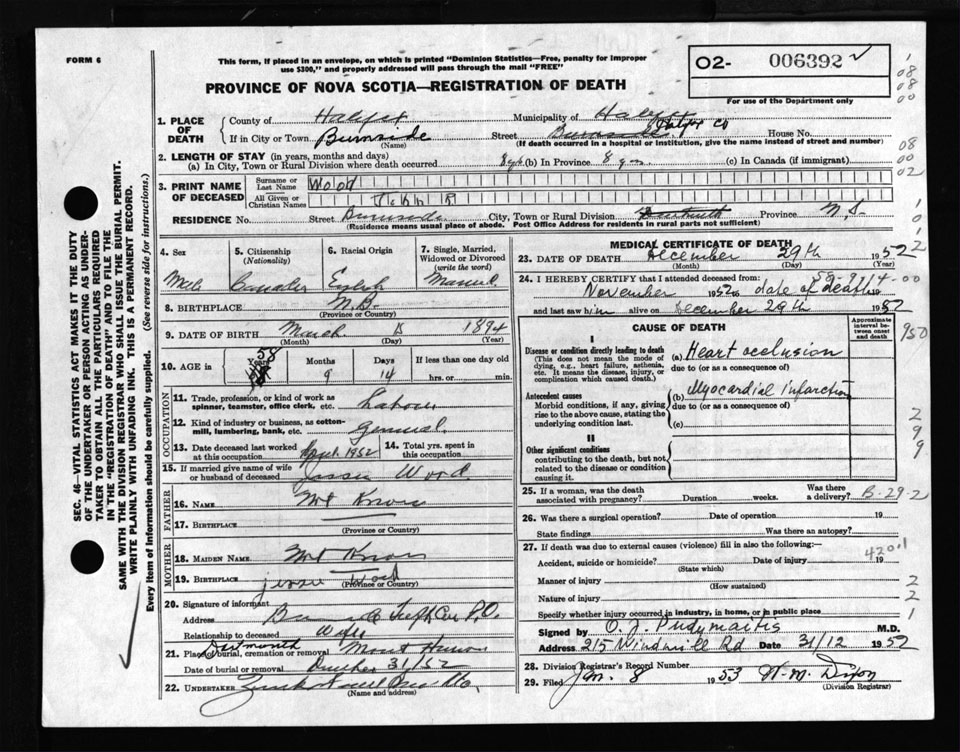 FORM 6
This form, if placed in an envelope, on which is printed "Dominion Statistics—Free, penalty for improper
use $300," and properly addressed will pass through the mail "FREE"
PROVINCE OF NOVA SCOTIA—REGISTRATION OF DEATH
O2- 006392
For use of the Department only
1. PLACE OF DEATH
County of Halifax Municipality of Halifax
If in City or Town Burnside Street Burnside Halifax Co House No.
(Name) (If death occurred in a hospital or institution, give the name instead of street and number)
2. LENGTH OF STAY (in years, months and days)
(a) In City, Town or Rural Division where death occurred 8 yrs (b) In Province 8 yrs (c) In Canada (if immigrant)
3. PRINT NAME OF DECEASED
Surname or Last Name Wood
All Given or Christian Names John R
RESIDENCE No. Street Burnside City, Town or Rural Division Dartmouth Province N.S.
(Residence means usual place of abode. Post Office Address for residents in rural parts not sufficient)
4. Sex Male
5. Citizenship (Nationality)
6. Racial Origin English
7. Single, Married, Widowed or Divorced (write the word) Married
8. BIRTHPLACE N.B.
(Province or Country)
9. DATE OF BIRTH March 15 1894
(Month) (Day) (Year)
10. AGE in Years 58 Months 9 Days 14 If less than one day old hrs. or min.
OCCUPATION
11. Trade, profession, or kind of work as spinner, teamster, office clerk, etc. Labour
12. Kind of industry or business, as cotton-mill, lumbering, bank, etc. General
13. Date deceased last worked at this occupation 1952
14. Total yrs. spent in this occupation
15. If married give name of wife or husband of deceased Jessie Wood
FATHER
16. NAME Not Known
17. BIRTHPLACE
(Province or Country)
MOTHER
18. MAIDEN NAME Not Known
19. BIRTHPLACE
(Province or Country)
20. Signature of informant Jessie Wood
Address P.O.
Relationship to deceased Wife
21. Place of burial, cremation or removal Dartmouth Mount Hermon
Date of burial or removal December 31/52
22. UNDERTAKER
(Name and address)
MEDICAL CERTIFICATE OF DEATH
23. DATE OF DEATH December 29th 1952
(Month) (Day) (Year)
24. I HEREBY CERTIFY that I attended deceased from:
58-9-14-00
November 1952 to date of death 19
and last saw him alive on December 29th 1952
CAUSE OF DEATH
Approximate interval between onset and death
I
Disease or condition directly leading to death
(This does not mean the mode of dying, e.g., heart failure, asthenia, etc. It means the disease, injury, or complication which caused death.)
(a) Heart occlusion
due to (or as a consequence of)
Antecedent causes
Morbid conditions, if any, giving rise to the above cause, stating the underlying condition last.
(b) Myocardial infarction
due to (or as a consequence of)
(c)
II
Other significant conditions
contributing to the death, but not related to the disease or condition causing it.
25. If a woman, was the death associated with pregnancy? Duration weeks. Was there a delivery? B-29-2
26. Was there a surgical operation? Date of operation 19
State findings Was there an autopsy?
27. If death was due to external causes (violence) fill in also the following:
420.1
Accident, suicide or homicide? Date of injury 19
(State which)
Manner of injury
(How sustained)
Nature of injury
Specify whether injury occurred in industry, in home, or in public place
Signed by O. J. Pudymaitis M.D.
Address 215 Windmill Rd Date 31/12 1952
28. Division Registrar's Record Number
29. Filed Jan. 8 1953 W. M. Dixon
(Division Registrar)
SEC. 46—VITAL STATISTICS ACT MAKES IT THE DUTY
OF THE UNDERTAKER OR PERSON ACTING AS UNDER-
TAKER TO OBTAIN ALL THE PARTICULARS REQUIRED
IN THE "REGISTRATION OF DEATH" AND TO FILE THE
SAME WITH THE DIVISION REGISTRAR WHO SHALL ISSUE THE BURIAL PERMIT.
WRITE PLAINLY WITH UNFADING INK. THIS IS A PERMANENT RECORD.
Every item of Information should be carefully supplied. (See reverse side for instructions.)